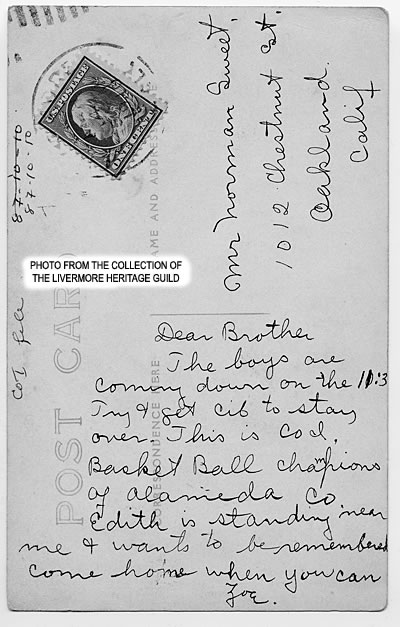 Mr Norman Sweet.
1012 Chestnut St.
Oakland.
Calif
U.S. POSTAGE
ONE CENT
87-10-10
87-10-10
PHOTO FROM THE COLLECTION OF
THE LIVERMORE HERITAGE GUILD
POST CARD
NAME AND ADDRESS
CORRESPONDENCE HERE
Dear Brother
The boys are
coming down on the 10:3
Try & get cib to stay
over. This is Cod.
Basket Ball champions
of Alameda Co
Edith is standing near
me & wants to be remembered
come home when you can